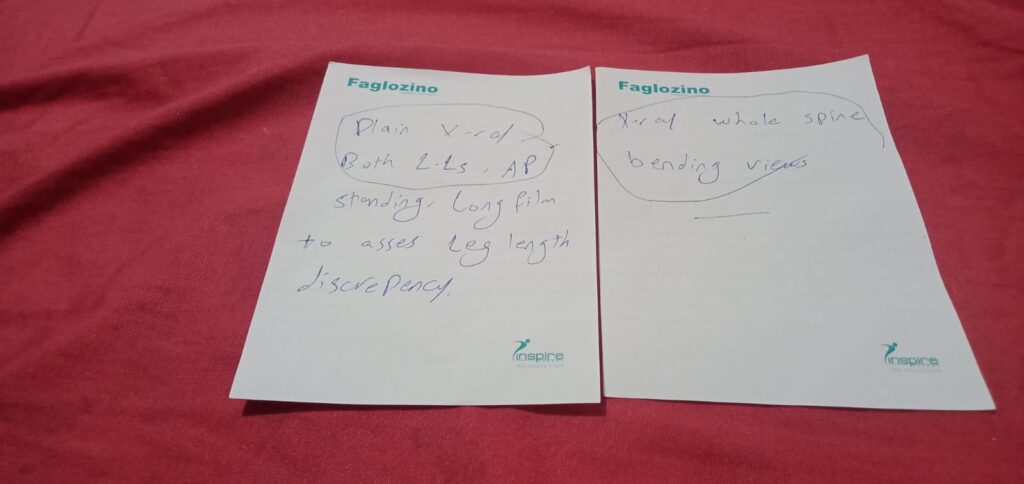 Faglozino
Plain X-ray
Both L.Ls, AP
standing, Long film
to asses Leg length
discrepency.
inspire
Faglozino
X-ray whole spine
bending views
inspire